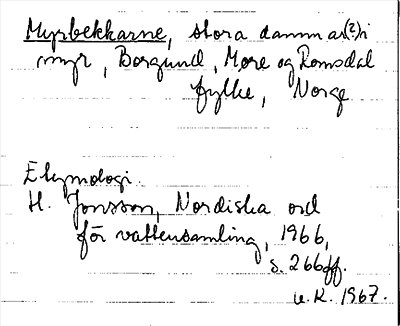 Myrbekkarne, stora dammar(?) i
myr, Borgund, Møre og Romsdal
fylke, Norge
Etymologi.
H. Jonsson, Nordiska ord
för vattensamling, 1966,
s. 266ff.
u.K. 1967.